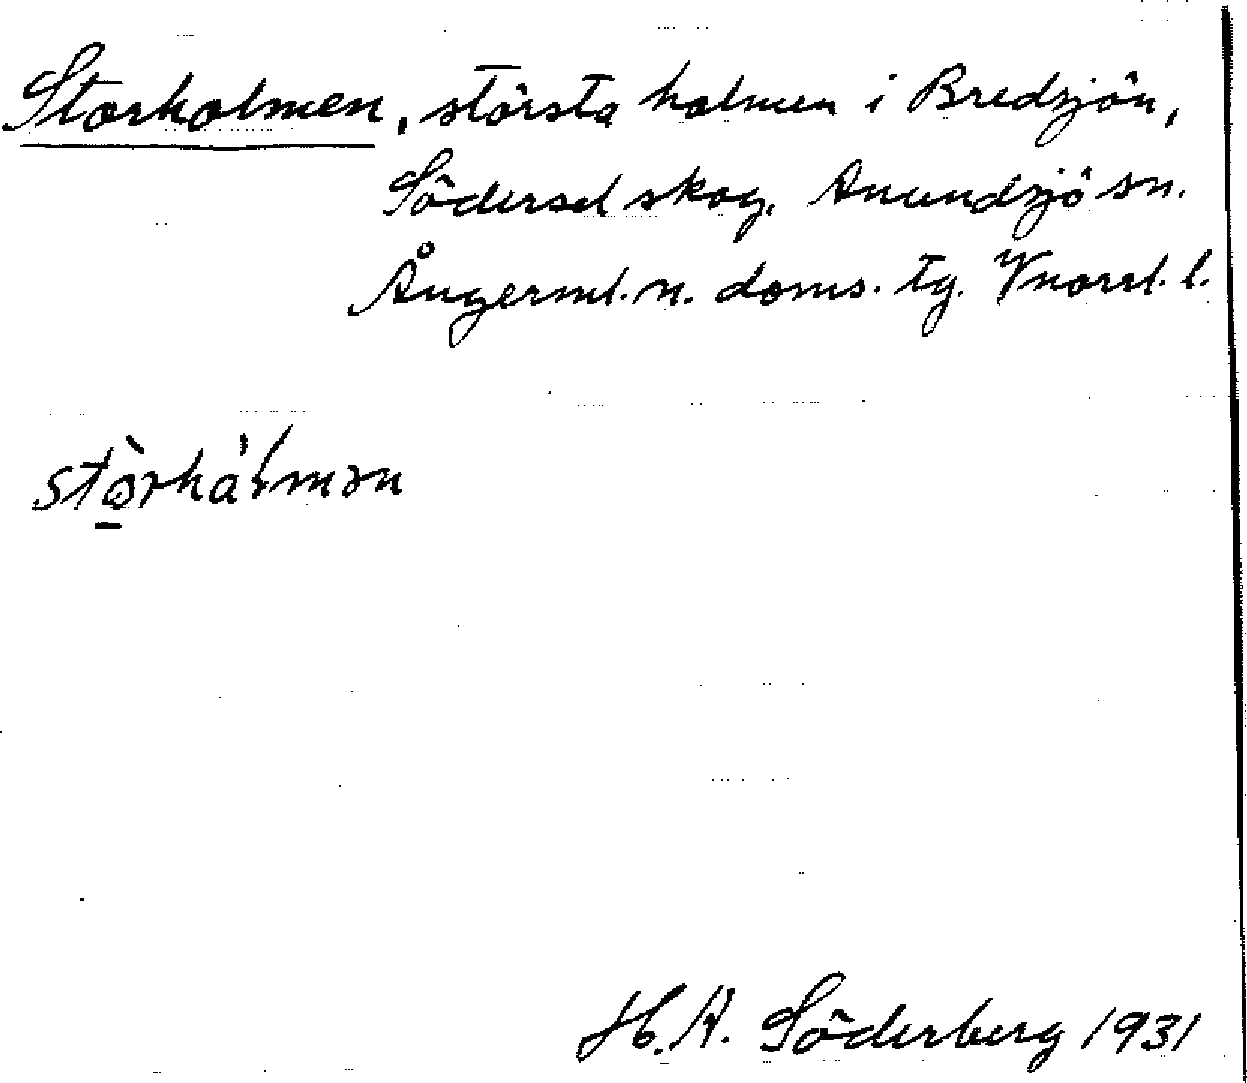 Storholmen, största holmen i Bredsjön,
Södersel skog, Anundsjö sn.
Ångerml. n. doms. tg. Vnorrl. l.
stòrhálmən
H. A. Söderberg 1931